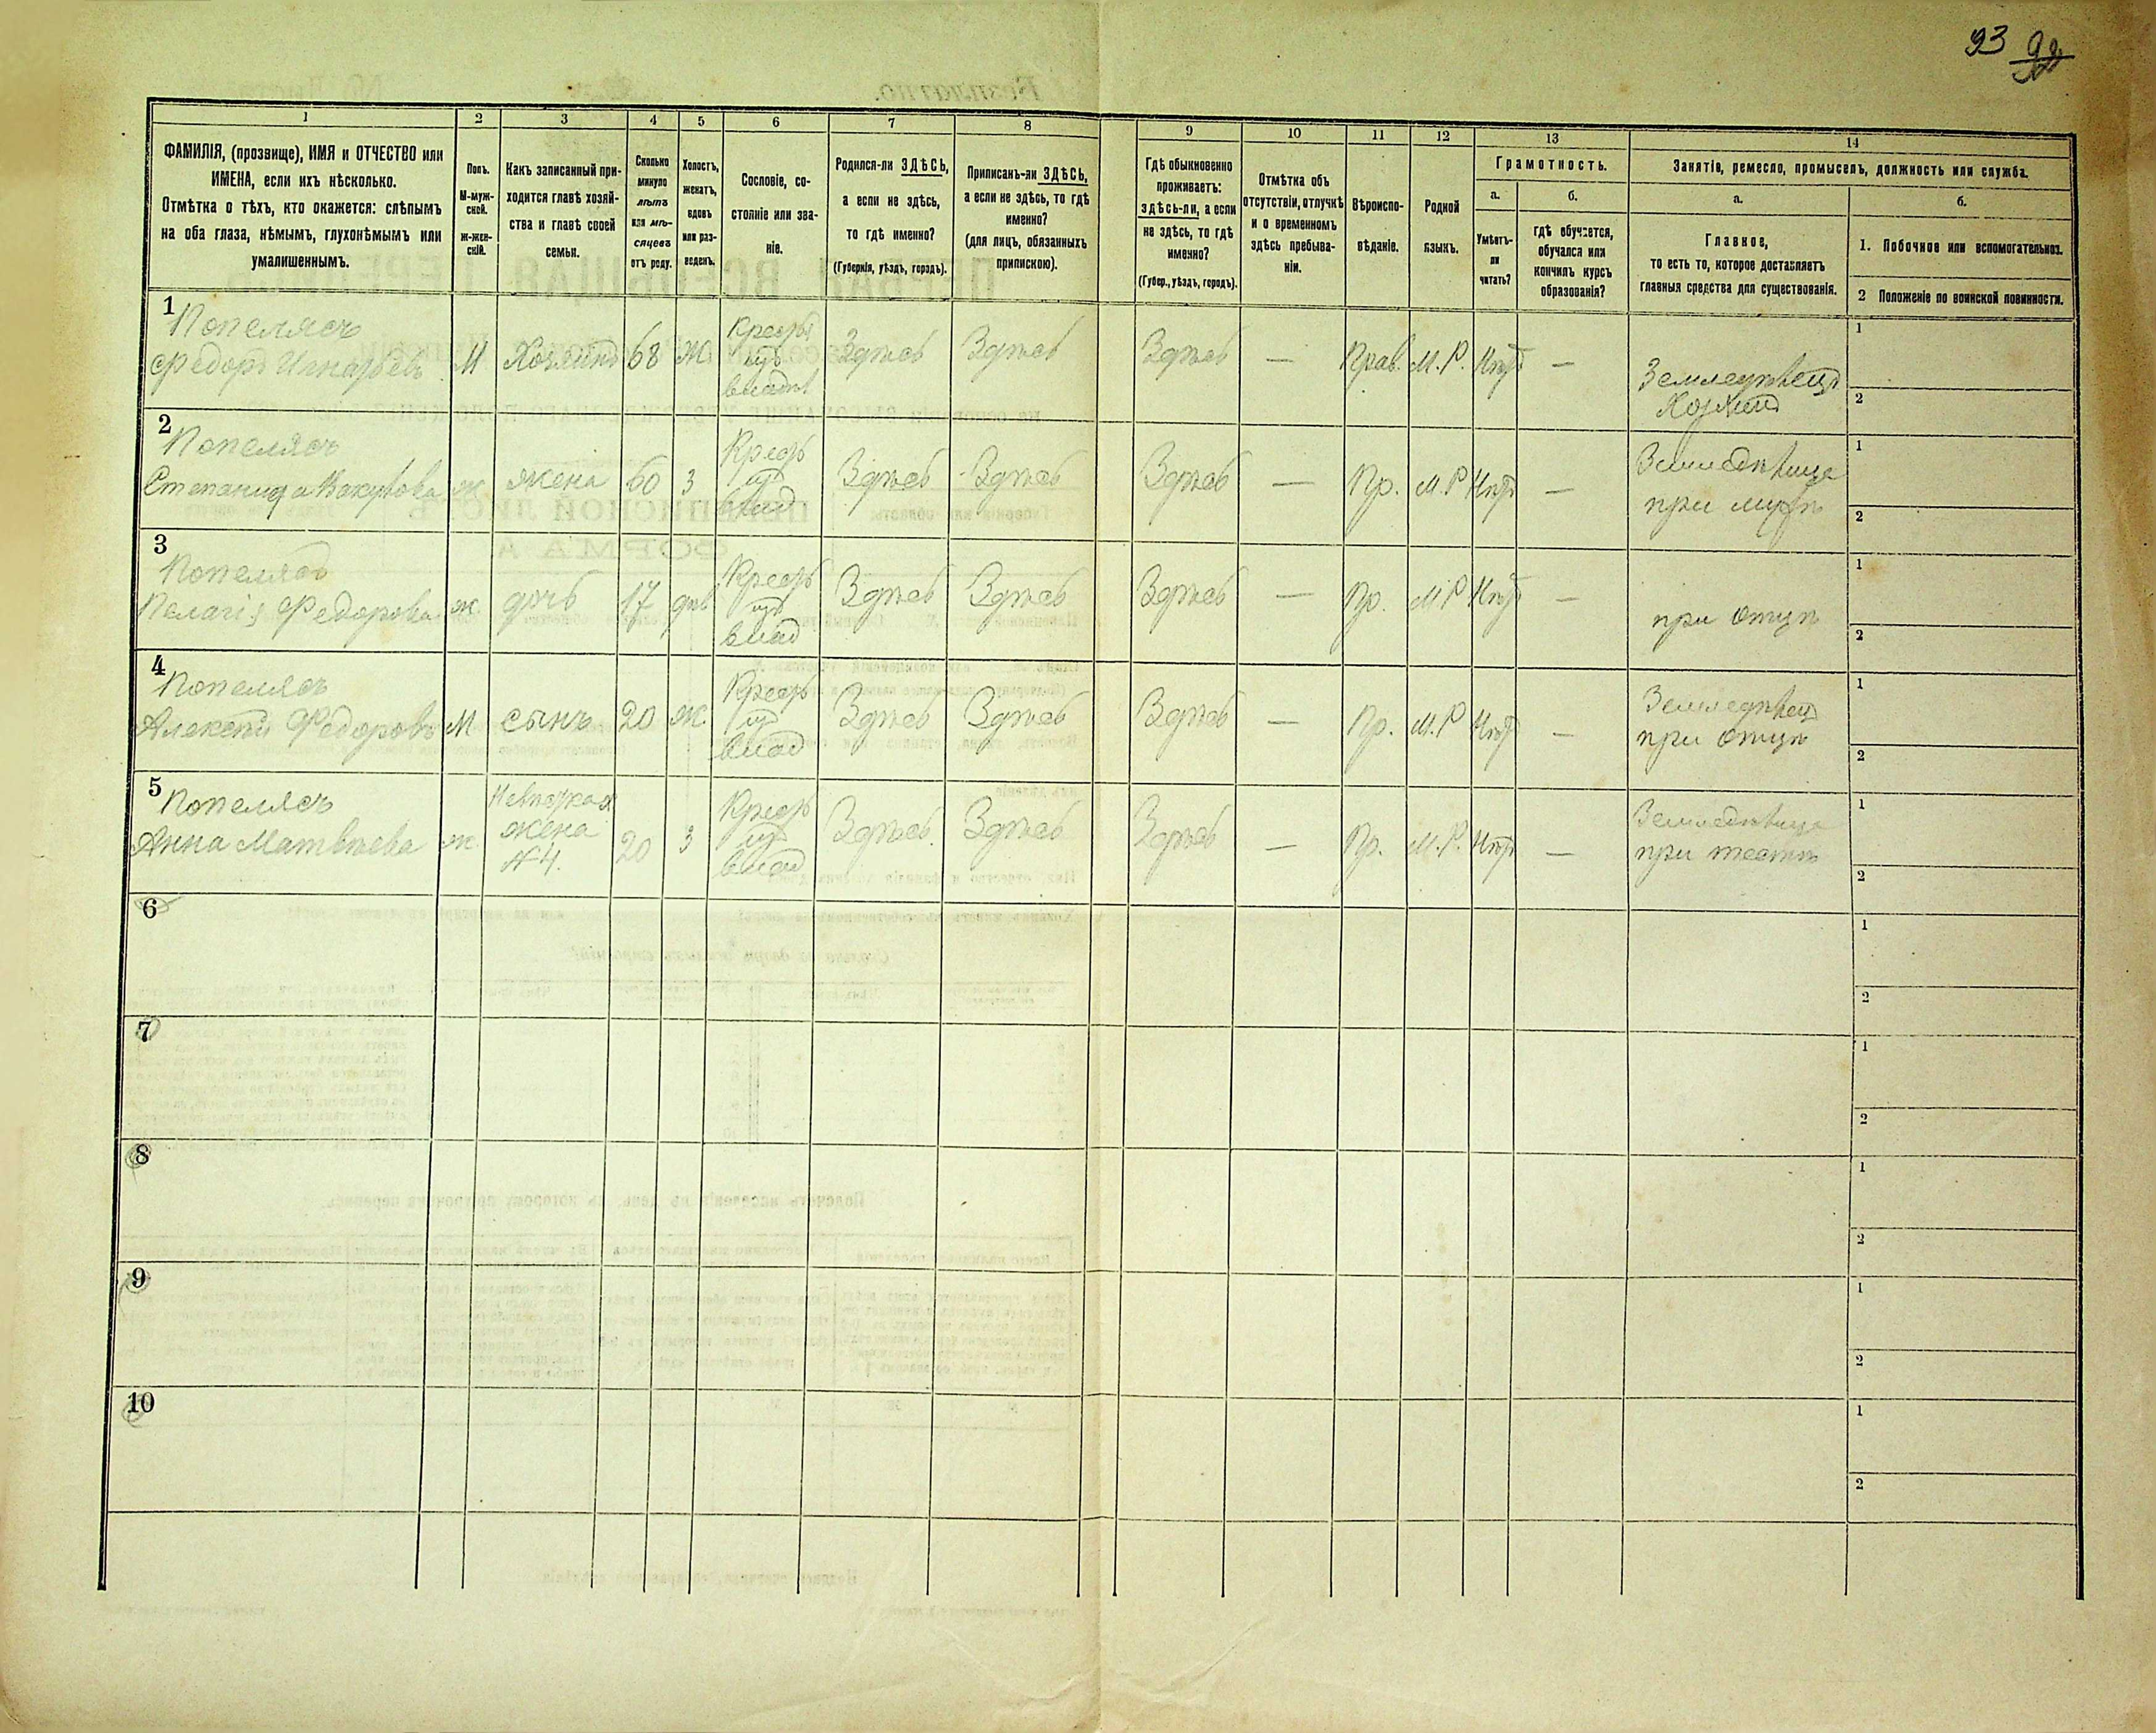 93 92
1
2
3
4
5
6
7
8
9
10
11
12
13
14
ФАМИЛІЯ, (прозвище), ИМЯ и ОТЧЕСТВО или
ИМЕНА, если ихъ нѣсколько.
Отмѣтка о тѣхъ, кто окажется: слѣпымъ
на оба глаза, нѣмымъ, глухонѣмымъ или
умалишеннымъ.
Полъ.
М-муж-
ской.
Ж-жен-
скій.
Какъ записанный при-
ходится главѣ хозяй-
ства и главѣ своей
семьи.
Сколько
минуло
лѣтъ
или мѣ-
сяцевъ
отъ роду.
Холостъ,
женатъ,
вдовъ
или раз-
веденъ.
Сословіе, со-
стояніе или зва-
ніе.
Родился-ли ЗДѢСЬ,
а если не здѣсь,
то гдѣ именно?
(Губернія, уѣздъ, городъ).
Приписанъ-ли ЗДѢСЬ,
а если не здѣсь, то гдѣ
именно?
(для лицъ, обязанныхъ
припискою).
Гдѣ обыкновенно
проживаетъ:
здѣсь-ли, а если
не здѣсь, то гдѣ
именно?
(Губер., уѣздъ, городъ).
Отмѣтка объ
отсутствіи, отлучкѣ
и о временномъ
здѣсь пребыва-
ніи.
Вѣроиспо-
вѣданіе.
Родной
языкъ.
Грамотность.
а.
Умѣетъ-
ли
читать?
б.
гдѣ обучается,
обучался или
кончилъ курсъ
образованія?
Занятіе, ремесло, промыселъ, должность или служба.
а.
Главное,
то есть то, которое доставляетъ
главныя средства для существованія.
б.
1. Побочное или вспомогательное.
2 Положеніе по воинской повинности.
1
Попелясъ
Федоръ Игнатьевъ
М
Хозяинъ
68
Ж
Крестья
изъ
владѣл
Здѣсь
Здѣсь
Здѣсь
—
Прав.
М.Р.
Нѣт
—
Земледѣлецъ
Хозяинъ
1
2
2
Попелясъ
Степанида
ж
жена
60
3
Крестья
из
влад
Здѣсь
Здѣсь
Здѣсь
—
Пр.
М.Р
Нѣт
—
Земледѣлица
при мужѣ
1
2
3
Попелясъ
Пелагія Федорова
ж.
дочь
17
дѣв
Крестья
изъ
влад
Здѣсь
Здѣсь
Здѣсь
—
Пр.
М.Р
Нѣт
—
при отцѣ
1
2
4
Попелясъ
Алексѣй Федоровъ
М
сынъ
20
ж.
Крестья
из
влад
Здѣсь
Здѣсь
Здѣсь
—
Пр.
М.Р
Нѣт
—
Земледѣлец
при отцѣ
1
2
5
Попелясъ
Анна Матвѣева
ж.
Невѣстка
жена
№4.
20
3
Крестья
из
влад
Здѣсь.
Здѣсь
Здѣсь
—
Пр.
М.Р.
Нѣт
—
Земледѣлица
при тестѣ
1
2
6
1
2
7
1
2
8
1
2
9
1
2
10
1
2